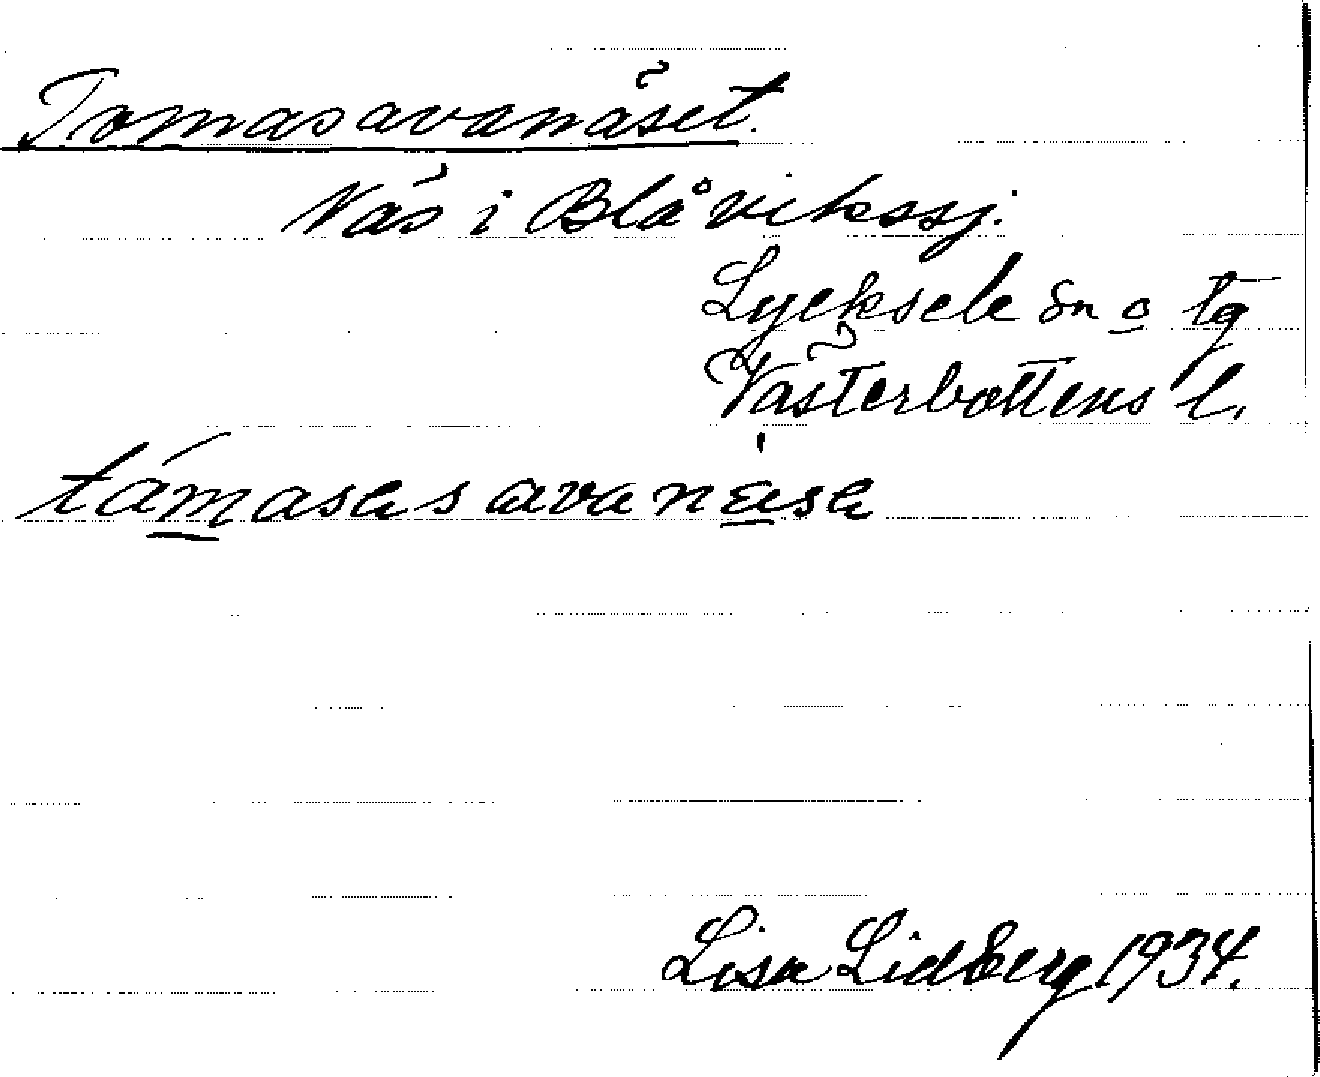 Tomasavanäset.
Näs i Blåvikssj.
Lycksele sn o tg
Västerbottens l.
támasas avanäsa
Lisa Lidberg 1934.